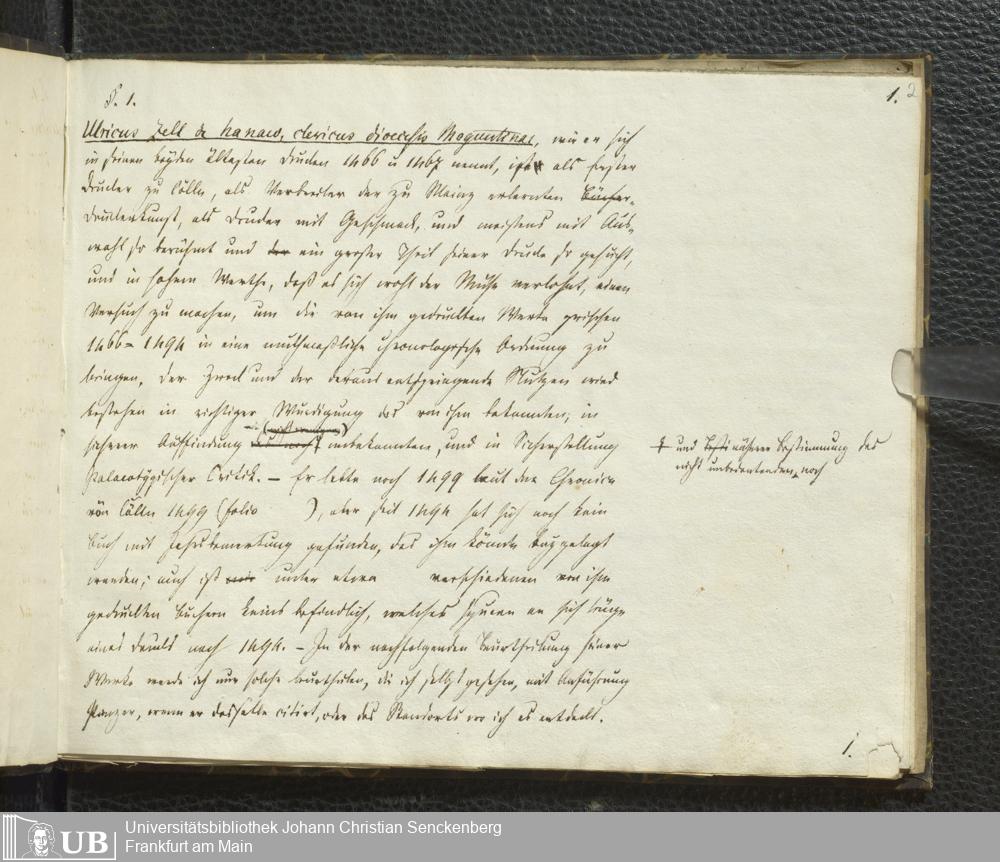 §. 1.
1. 2
Ulricus Zell de hanaw, clericus dioecesis Moguntinae, wie er sich
in seinen beyden ältesten Drucken 1466 u 1467 nennt, ist als Erster
Drucker zu Cölln, als Verbreiter der zu Mainz erlernten Bücher-
druckerkunst, als Drucker mit Geschmack, und meistens mit Aus-
wahl so berühmt und der ein großer Theil seiner Drucke so gesucht,
und in hohem Werthe, daß es sich wohl der Mühe verlohnt, einen
Versuch zu machen, um die von ihm gedruckten Werke zwischen
1466 = 1494 in eine muthmaßliche chronologische Ordnung zu
bringen, der Zweck und der daraus entspringende Nutzen wird
bestehen in richtiger Würdigung des von ihm bekannten, in
sicherer Auffindung unbekannten, und in Sicherstellung
+ und nähere Bestimmung des
nicht unbedeutenden, noch
Palaeotypischer Critik. – Er lebte noch 1499 laut der Chronica
von Cölln 1499 (folio ), aber seit 1494 hat sich noch kein
Buch mit Jahrsbemerkung gefunden, das ihm könnte beygelegt
werden; auch ist unter etwa verschiedenen von ihm
gedruckten Büchern keins befindlich, welches Spuren an sich trüge
eines Datums nach 1494. – In der nachfolgenden Beurtheilung seiner
Werke werde ich nur solche beurtheilen, die ich selbst gesehen, mit Anführung
Panzer, wenn er dasselbe citirt, oder des Standorts wo ich es entdeckt.
1.
UB
Universitätsbibliothek Johann Christian Senckenberg
Frankfurt am Main